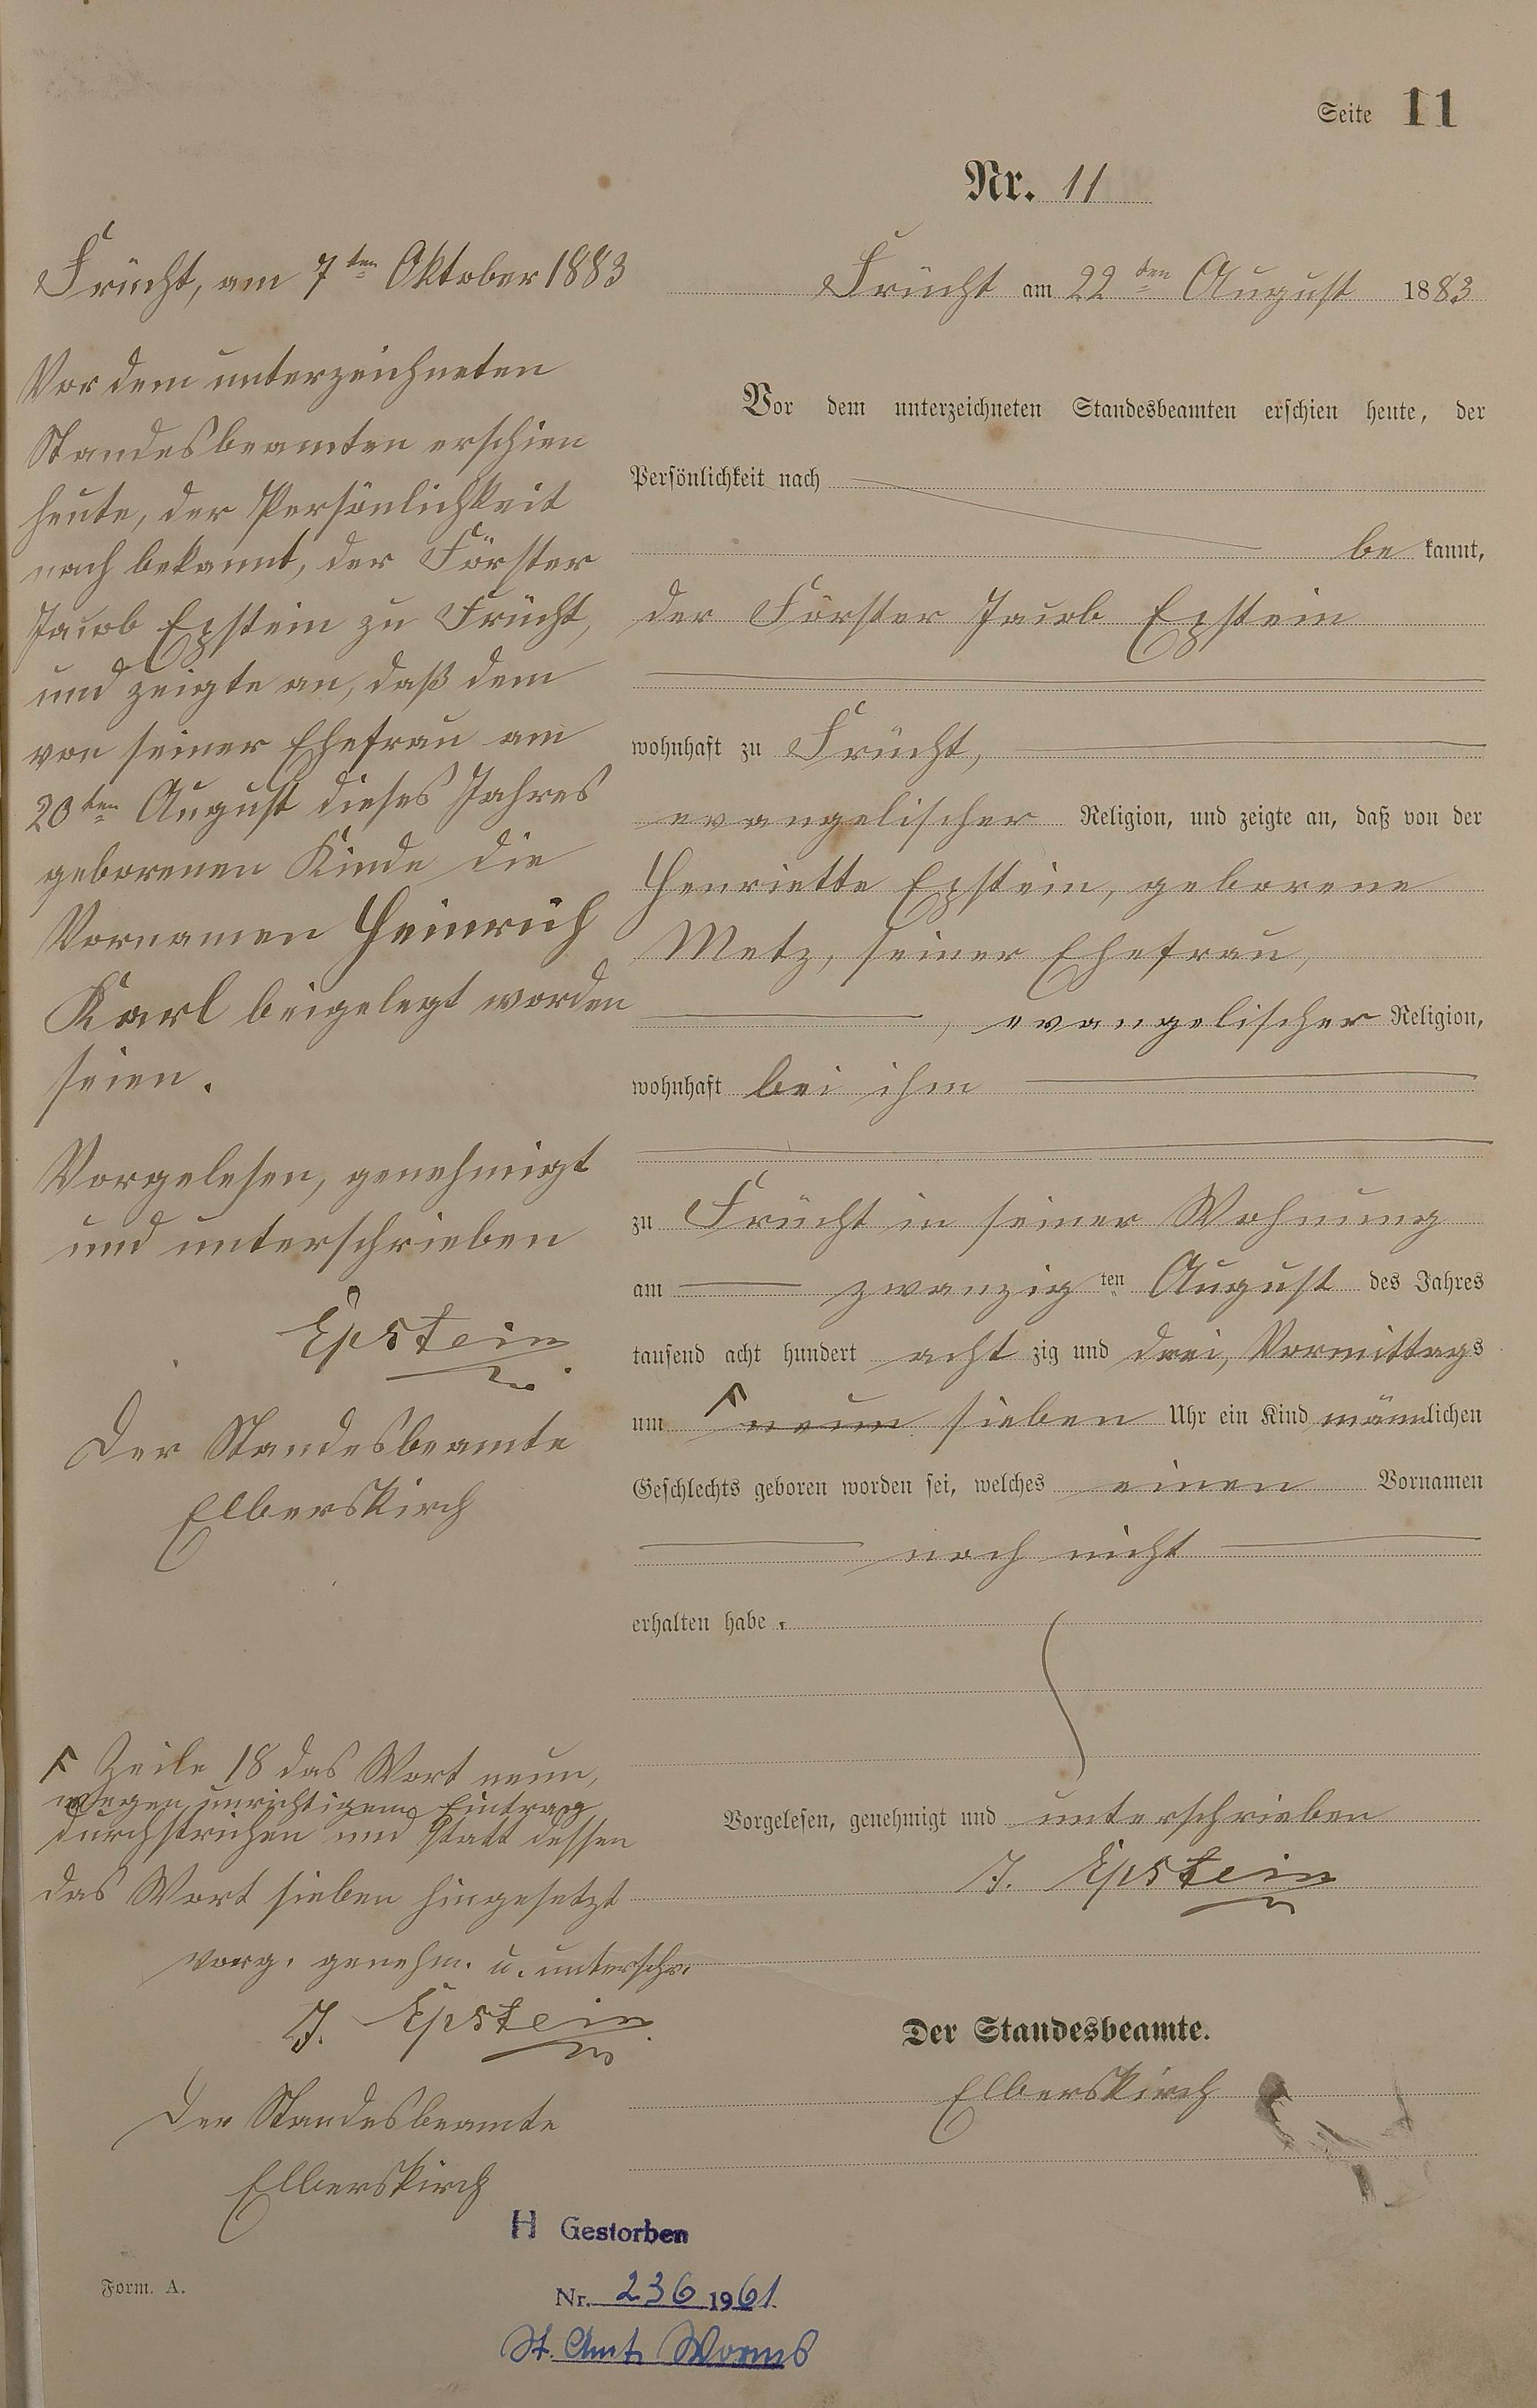 Seite 11
Nr. 11
Frücht am 22ten August 1883
Vor dem unterzeichneten Standesbeamten erschien heute, der
Persönlichkeit nach
be kannt,
der Förster Jacob Epstein
wohnhaft zu Frücht,
evangelischer Religion, und zeigte an, daß von der
Henriette Epstein, geborene
Metz, seiner Ehefrau,
, evangelischer Religion,
wohnhaft bei ihm
zu Frücht in seiner Wohnung
am zwanzig ten August des Jahres
tausend acht hundert acht zig und drei, Vormittags
um neun sieben Uhr ein Kind männlichen
Geschlechts geboren worden sei, welches einen Vornamen
noch nicht
erhalten habe.
Vorgelesen, genehmigt und unterschrieben
J. Epstein
Der Standesbeamte.
Elberskirch
Frücht, am 7ten Oktober 1883
Vor dem unterzeichneten
Standesbeamten erschien
heute, der Persönlichkeit
nach bekannt, der Förster
Jacob Epstein zu Frücht,
und zeigte an, daß dem
von seiner Ehefrau am
20ten August dieses Jahres
geborenen Kinde die
Vornamen Heinrich
Karl beigelegt worden
seien.
Vorgelesen, genehmigt
und unterschrieben
Epstein
Der Standesbeamte
Elberskirch
Zeile 18 das Wort neun,
wegen unrichtigem Eintrag
durchstrichen und statt dessen
das Wort sieben hingesetzt
vorg. genehm. u. unterschr.
J. Epstein
Der Standesbeamte
Elberskirch
H Gestorben
Nr. 236 1961.
St. Amt Worms
Form. A.